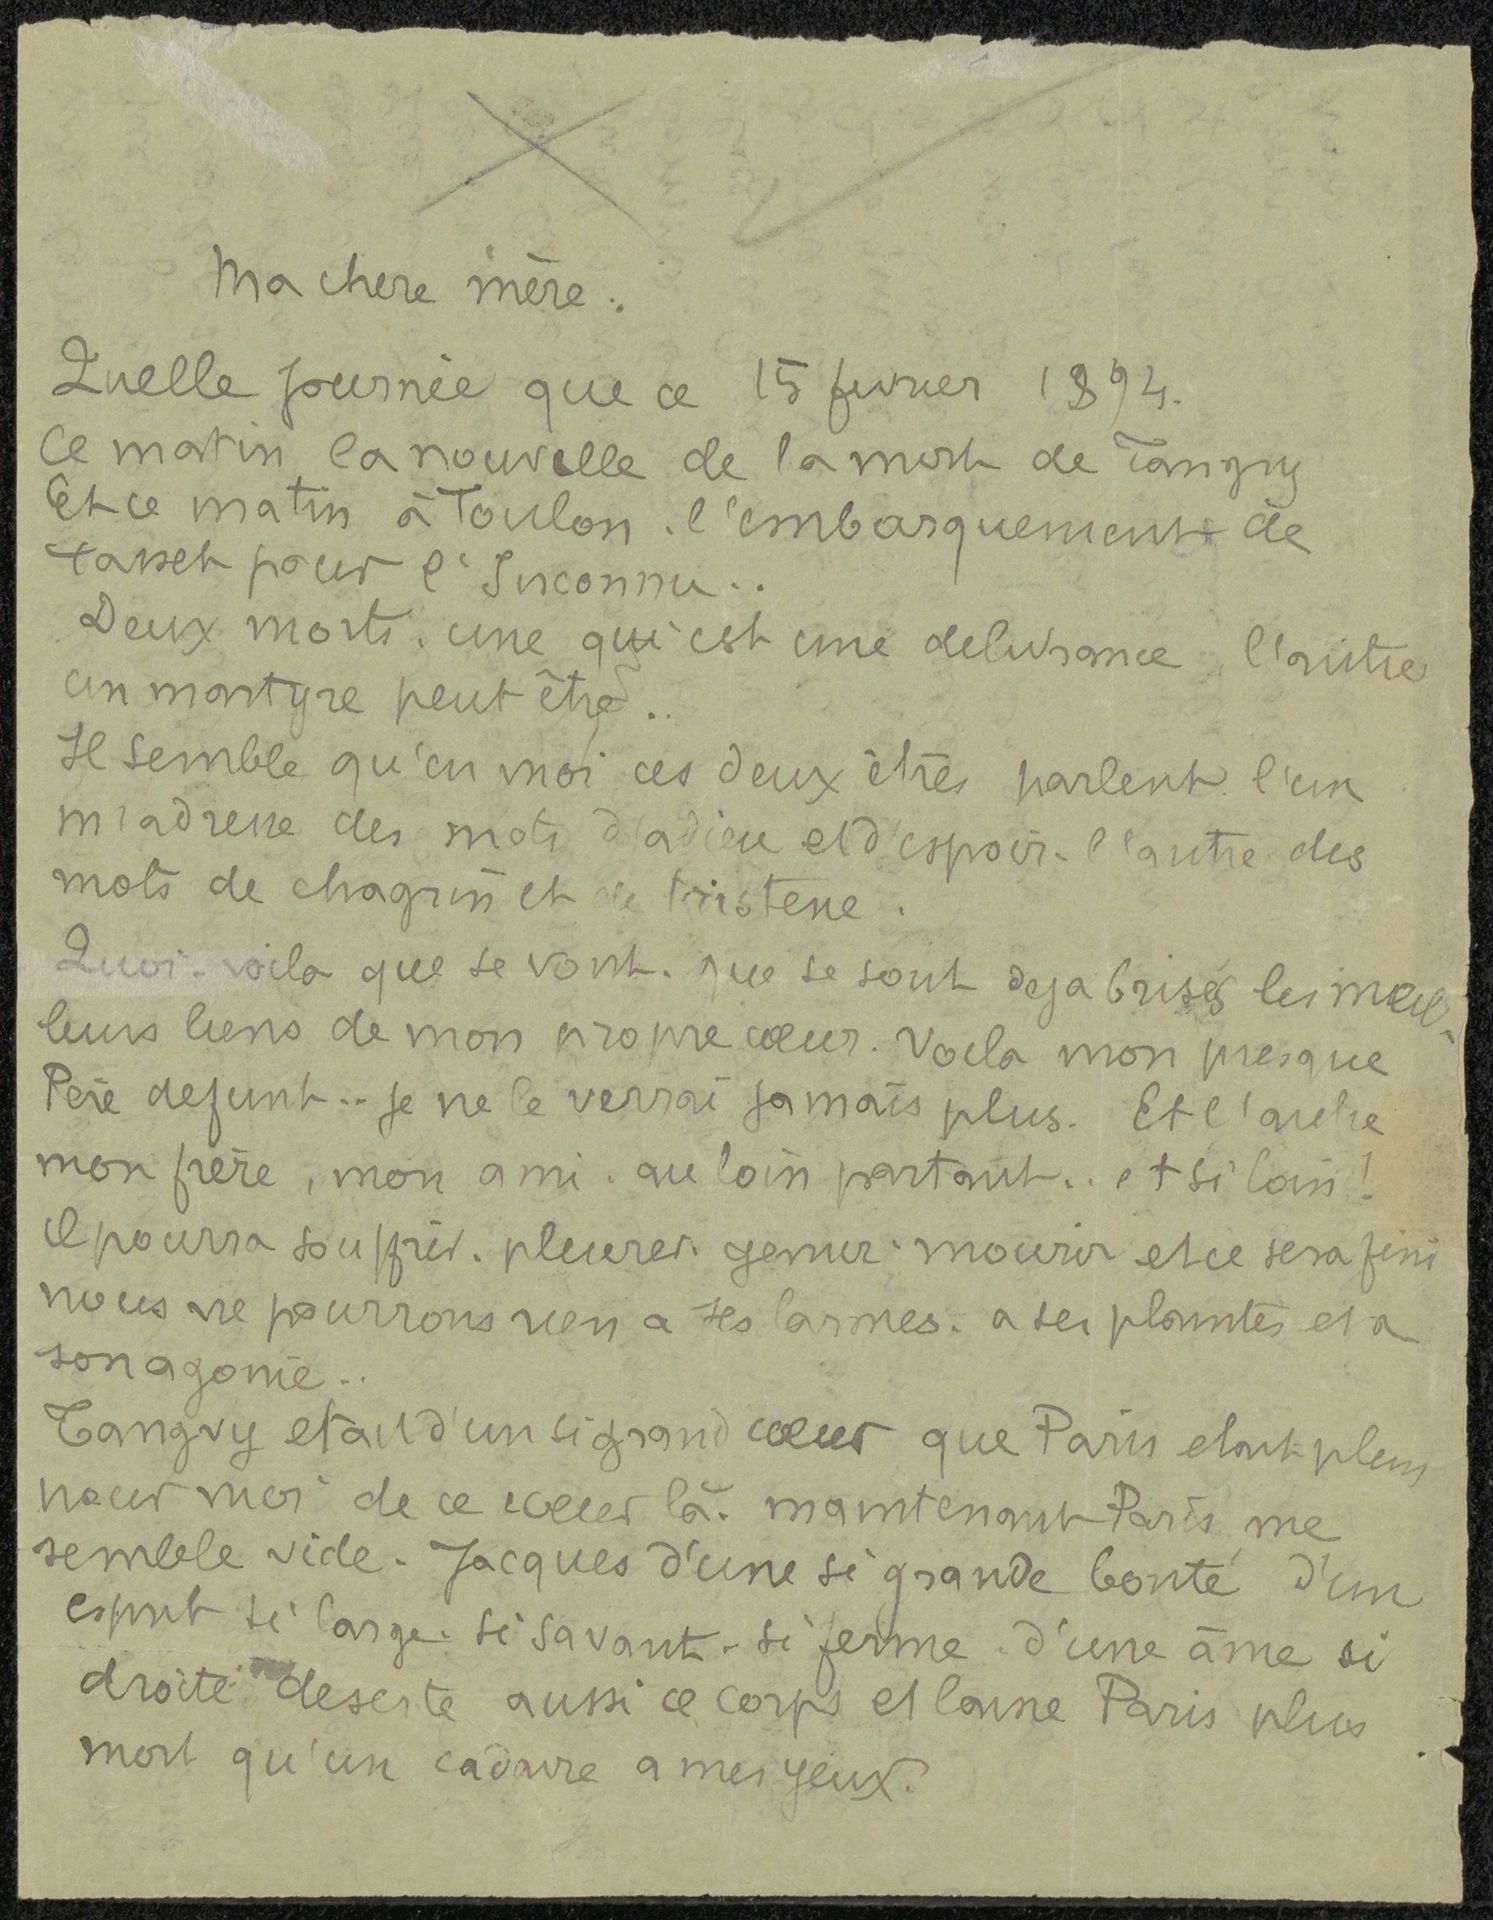 Ma chere mère.
Quelle journée que ce 15 fevrier 1894.
Ce matin la nouvelle de la mort de Tanguy
Et ce matin à Toulon. l'embarquement de
Tasset pour l'Inconnu..
Deux morts. une qui est une delivrance, l'autre
un martyre peut être..
Il semble qu'en moi ces deux êtres parlent l'un
m'adresse des mots d'adieu et d'espoir. l'autre des
mots de chagrin et de tristesse.
Quoi. voila que se vont. que se sont deja brisés les meil-
leurs liens de mon propre cœur. Voila mon presque
Père defunt.. je ne le verrai jamais plus. Et l'autre
mon frère, mon ami. au loin partant.. et si loin!
Il pourra souffrir. pleurer. gemir. mourir et ce sera fini
nous ne pourrons rien a ses larmes. a ses plaintes et a
son agonie..
Tanguy etait d'un si grand cœur que Paris etait plein
pour moi de ce cœur là. maintenant Paris me
semble vide. Jacques d'une si grande bonté d'un
esprit si large. si savant. si ferme. d'une âme si
droite deserte aussi ce corps et laisse Paris plus
mort qu'un cadavre a mes yeux.